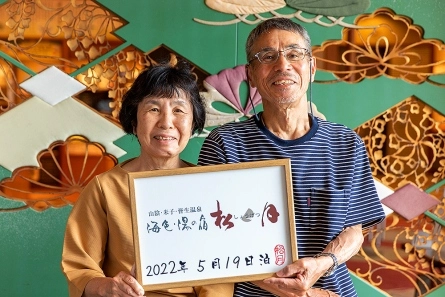 山陰・米子・皆生温泉
海色・湯の宿 松月
2022年 5月19日 泊